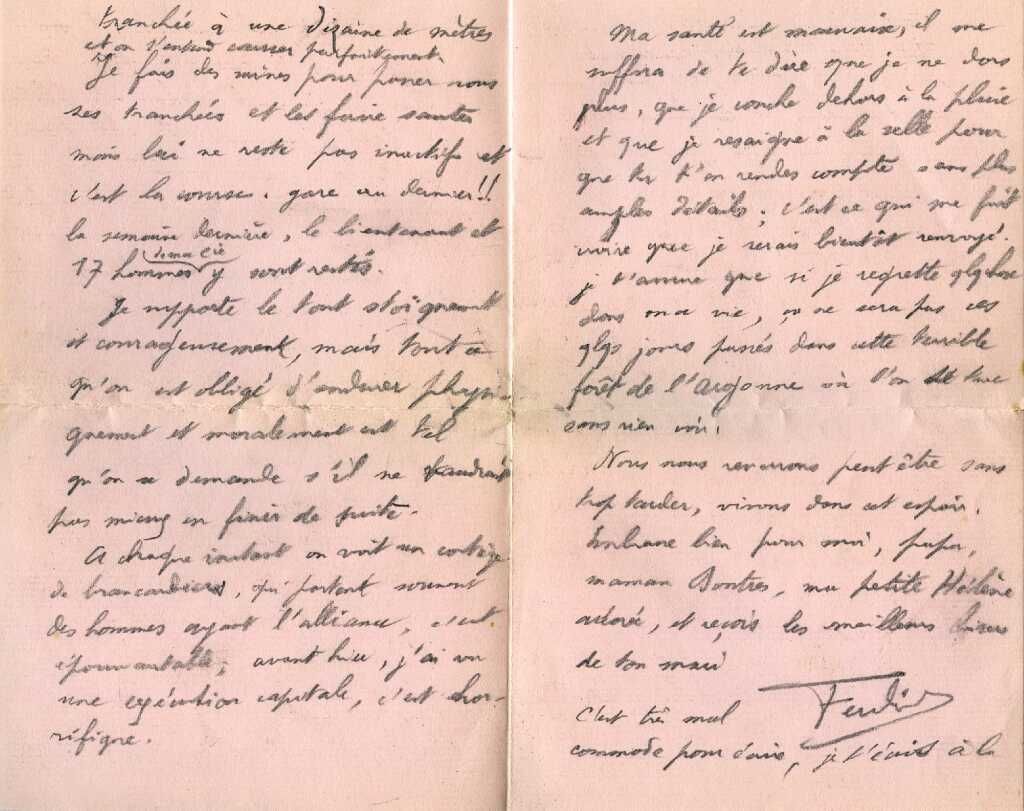 tranchée à une dizaine de mètres
et on s'entend causer parfaitement.
Je fais des mines pour passer sous
ses tranchées et les faire sauter
mais lui ne reste pas inactifs et
c'est la course. gare au dernier!!
la semaine dernière, le lieutenant et
de ma Cie
17 hommes y sont restés.
Je supporte le tout stoïquement
et courageusement, mais tout ce
qu'on est obligé d'endurer physi-
quement et moralement est tel
qu'on se demande s'il ne faudrait
pas mieux en finir de suite.
A chaque instant on voit un cortège
de brancardiers, qui portent souvent
des hommes ayant l'alliance, c'est
épouvantable; avant hier, j'ai vu
une exécution capitale, c'est hor-
rifique.
Ma santé est mauvaise, il me
suffira de te dire que je ne dors
plus, que je couche dehors à la pluie
et que je resaigne à la selle pour
que tu t'en rendes compte sans plus
amples détails; c'est ce qui me fait
croire que je serais bientôt renvoyé.
je t'assure que si je regrette qlq chose
dans ma vie, ça ne sera pas ces
qlqs jours passés dans cette terrible
forêt de l'Argonne où l'on se tue
sans rien voir.
Nous nous reverrons peut être sans
trop tarder, vivons dans cet espoir.
Embrasse bien pour moi, papa,
maman Bontres, ma petite Hélène
adorée, et reçois les meilleurs baisers
de ton mari
C'est très mal
commode pour écrire, je t'écris à la